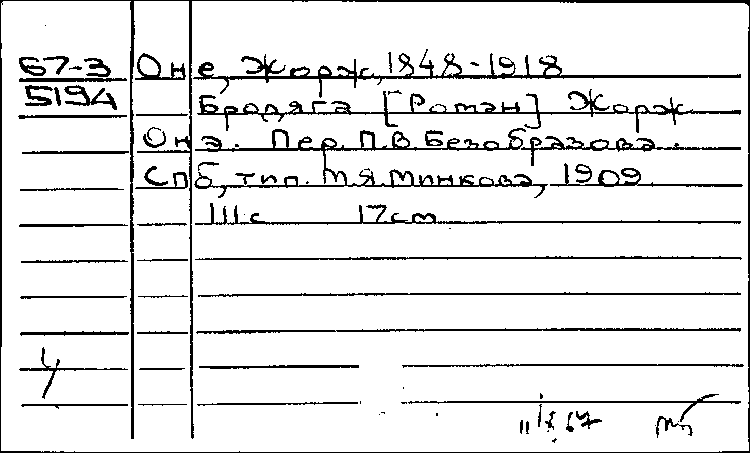 67-3 Оне, Жорж, 1848-1918
5194 Бродяга [Роман] Жорж
Она. Пер. П.В. Безобразова.
Спб, тип. М.Я. Минкова, 1909
111 с 17 cm